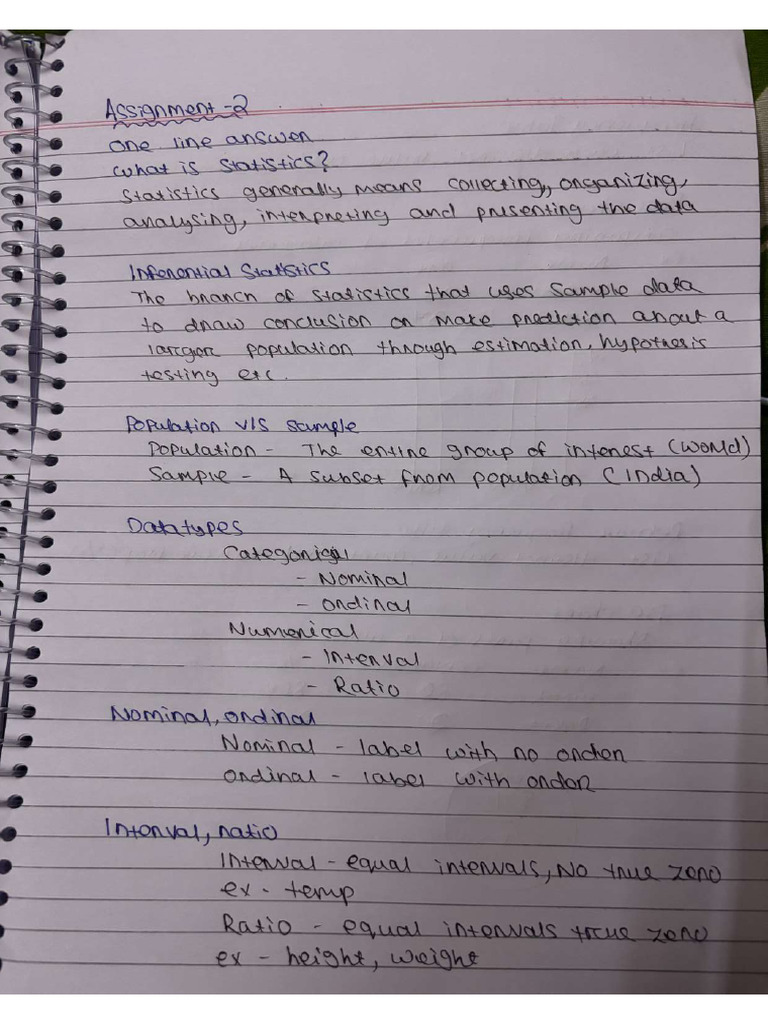 Assignment-2
One line answer
What is Statistics?
Statistics generally means collecting, organizing,
analysing, interpreting and presenting the data
Inferential Statistics
The branch of statistics that uses sample data
to draw conclusion or make prediction about a
larger population through estimation, hypothesis
testing etc.
Population V/S sample
Population - The entire group of interest (World)
Sample - A subset from population (India)
Data types
Categorical
- Nominal
- ordinal
Numerical
- Interval
- Ratio
Nominal, ordinal
Nominal - label with no order
ordinal - label with order
Interval, ratio
Interval - equal intervals, No true zero
ex - temp
Ratio - equal intervals true zero
ex - height, weight